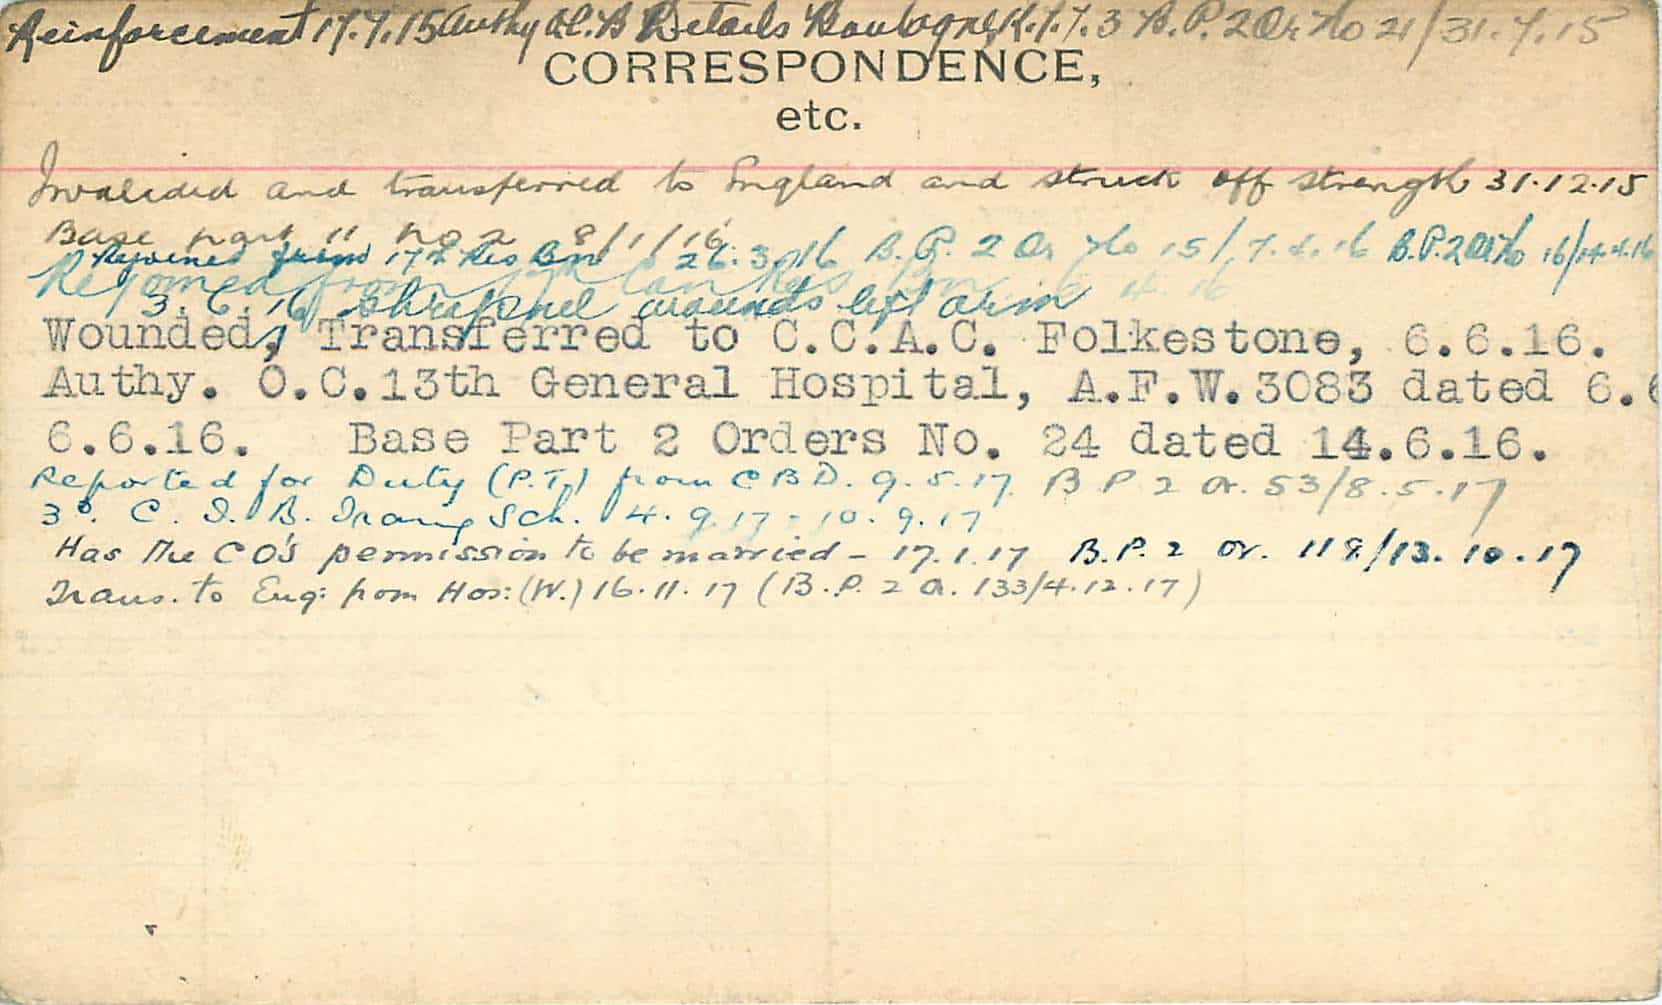 Reinforcement 17.7.15 Authy O.C.B Details Boulogne, K.1/7.3 B.P. 2 Or No 21/31.7.15
CORRESPONDENCE,
etc.
Invalided and transferred to England and struck off strength 31.12.15
Base part 11 No 2 8/1/16
Rejoined from 17th Res Bn 26.3.16 B.P. 2 Or No 15/7.4.16 B.P.2 Or No 16/14.4.16
Rejoined from
3.6.16 Shrapnel wounds left arm
Wounded, Transferred to C.C.A.C. Folkestone, 6.6.16.
Authy. O.C.13th General Hospital, A.F.W.3083 dated 6.6
6.6.16. Base Part 2 Orders No. 24 dated 14.6.16.
Reported for Duty (P.T.) from C B D. 9.5.17. B P 2 Or. 53/8.5.17
3D. C. I. B. Traing Sch. 4.9.17 - 10.9.17
Has the CO's permission to be married - 17.1.17 B.P. 2 Or. 118/13.10.17
Trans. to Eng: from Hos: (W.) 16.11.17 (B.P. 2 O. 133/4.12.17)